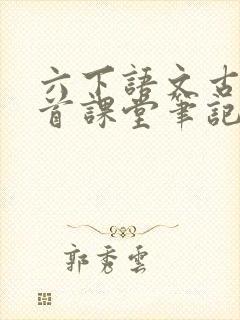 六下語文古
首課堂筆記
郭秀雲